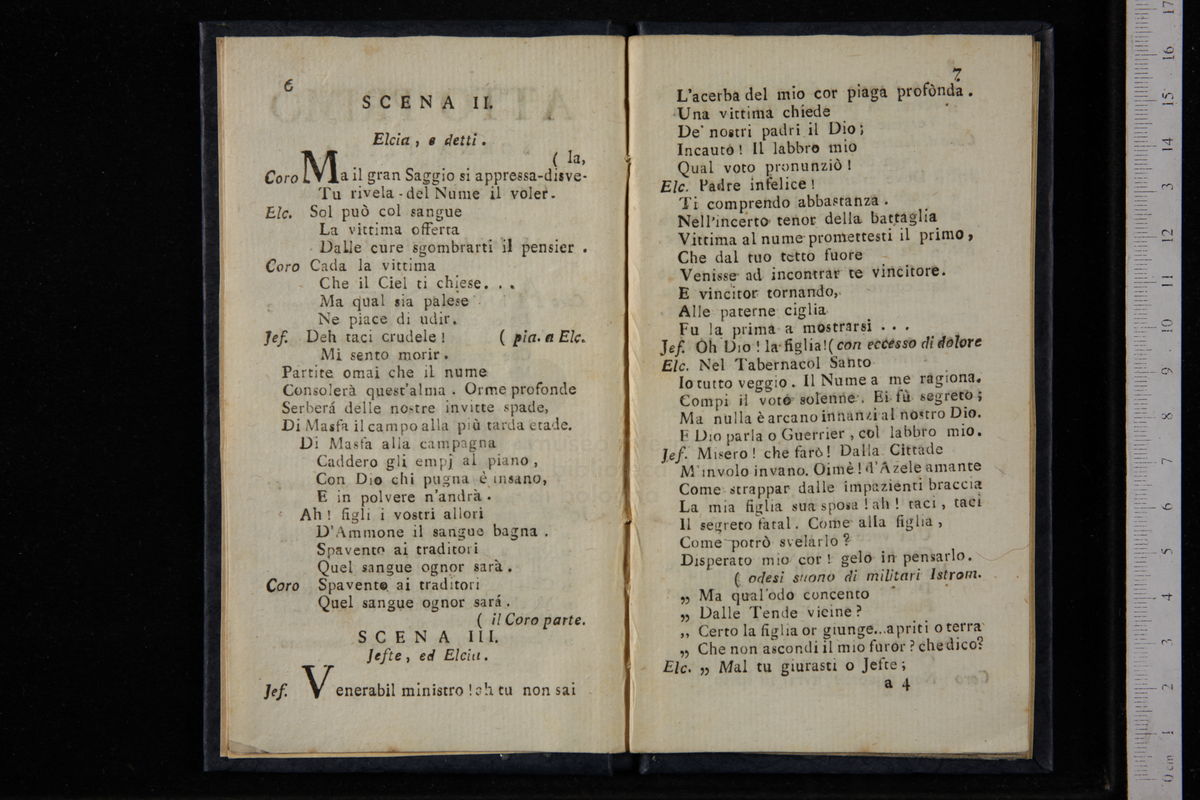 6
SCENA II.
Elcia, e detti.
( la,
Coro Ma il gran Saggio si appressa-disve-
Tu rivela - del Nume il voler.
Elc. Sol può col sangue
La vittima offerta
Dalle cure sgombrarti il pensier.
Coro Cada la vittima
Che il Ciel ti chiese...
Ma qual sia palese
Ne piace di udir.
Jef. Deh taci crudele! ( pia. a Elc.
Mi sento morir.
Partite omai che il nume
Consolerà quest'alma. Orme profonde
Serberá delle nostre invitte spade,
Di Masfa il campo alla più tarda etade.
Di Masfa alla campagna
Caddero gli empj al piano,
Con Dio chi pugna è insano,
E in polvere n'andrà.
Ah! figli i vostri allori
D'Ammone il sangue bagna.
Spavento ai traditori
Quel sangue ognor sarà.
Coro Spavento ai traditori
Quel sangue ognor sará.
( il Coro parte.
SCENA III.
Jefte, ed Elcia.
Jef. Venerabil ministro! ah tu non sai
7
L'acerba del mio cor piaga profònda.
Una vittima chiede
De' nostri padri il Dio;
Incauto! Il labbro mio
Qual voto pronunziò!
Elc. Padre infelice!
Ti comprendo abbastanza.
Nell'incerto tenor della battaglia
Vittima al nume promettesti il primo,
Che dal tuo tetto fuore
Venisse ad incontrar te vincitore.
E vincitor tornando,
Alle paterne ciglia
Fu la prima a mostrarsi...
Jef. Oh Dio! la figlia! ( con eccesso di dolore
Elc. Nel Tabernacol Santo
Io tutto veggio. Il Nume a me ragiona.
Compi il voto solenne. Ei fù segreto;
Ma nulla è arcano innanzi al nostro Dio.
E Dio parla o Guerrier, col labbro mio.
Jef. Misero! che farò! Dalla Cittade
M'involo invano. Oimè! d'Azele amante
Come strappar dalle impazienti braccia
La mia figlia sua sposa! ah! taci, taci
Il segreto fatal. Come alla figlia,
Come potrò svelarlo?
Disperato mio cor! gelo in pensarlo.
( odesi suono di militari Istrom.
„ Ma qual'odo concento
„ Dalle Tende vicine?
„ Certo la figlia or giunge...apriti o terra
„ Che non ascondi il mio furor? che dico?
Elc. „ Mal tu giurasti o Jefte;
a 4